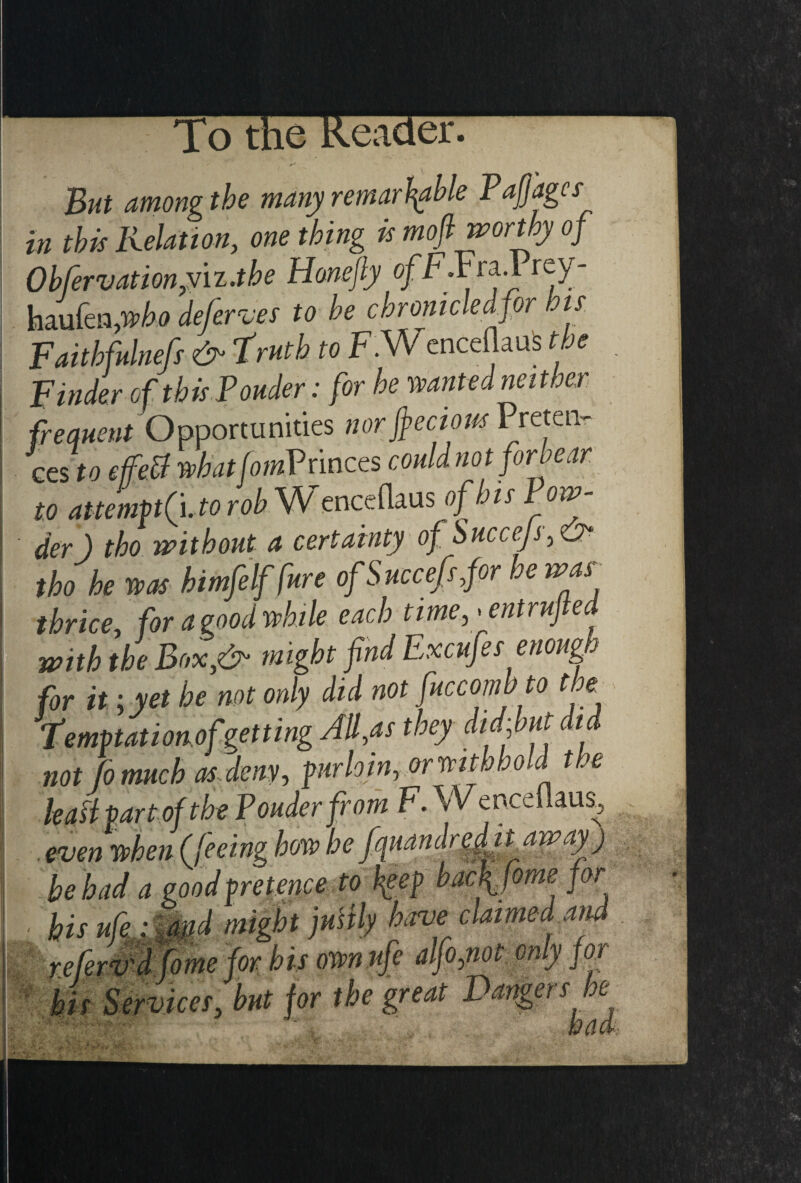 To the Reader.
But among the many remarkable Paſſages
in this Relation, one thing is moſt worthy of
Obſervation,viz.the Honeſty of F.Fra.Prey-
hauſen,who deſerves to be chronicled for his
Faithfulneſs & Truth to F.Wenceſlaus the
Finder of this Pouder: for he wanted neither
frequent Opportunities nor ſpecious Preten-
ces to effect what ſomPrinces could not forbear
to attempt(i.to rob Wenceſlaus of his Pow-
der) tho without a certainty of Succeſs, &
tho he was himſelf ſure of Succeſs,for he was
thrice, for a good while each time, entruſted
with the Box,& might find Excuſes enough
for it; yet he not only did not ſuccomb to the
Temptation of getting All,as they did;but did
not ſo much as deny, purloin, or withhold the
leaſt part of the Pouder from F. Wenceſlaus,
even when (ſeeing how he ſquandred it away)
he had a good pretence to keep back ſome for
his uſe: and might juſtly have claimed and
reſerv'd ſome for his own uſe alſo,not only for
his Services, but for the great Dangers he
had